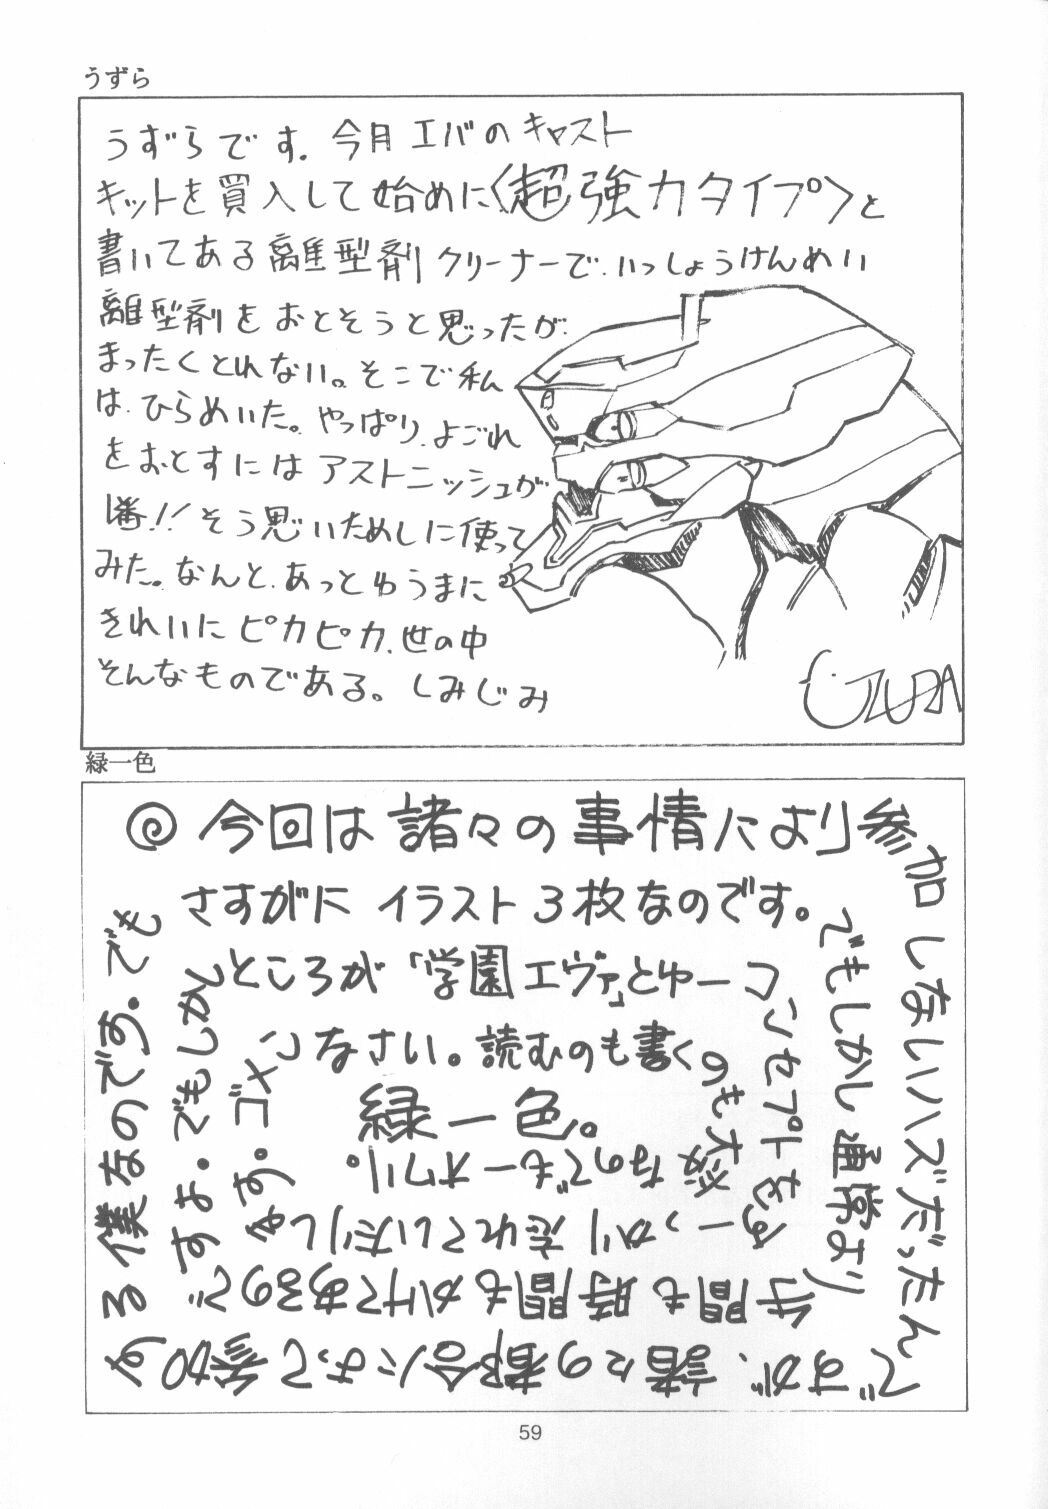 うずら
うずらです。今月エバのキャスト
キットを買入して始めに〈超強力タイプ〉と
書いてある離型剤クリーナーで、いっしょうけんめい
離型剤をおとそうと思ったが、
まったくとれない。そこで私
は、ひらめいた。やっぱり、よごれ
をおとすにはアストニッシュが
1番!!そう思いためしに使って
みた。なんと、あっとゆうまに
きれいにピカピカ、世の中
そんなものである。しみじみ
UZURA
緑一色
◎今回は諸々の事情により参加
しないハズだったん
ですが、諸々の都合によって参加す
る僕なのです。でも
さすがにイラスト3枚なのです。
でもしかし通常より
手間も時間もかけてあるので
すよ。でもしかし
ところが「学園エヴァ」とゆーコ
ンセプトをす
っかり忘れていたりし
ます。ゴメン
なさい。読むのも書く
のも大変
なのでもーオワリ。
緑一色。
59